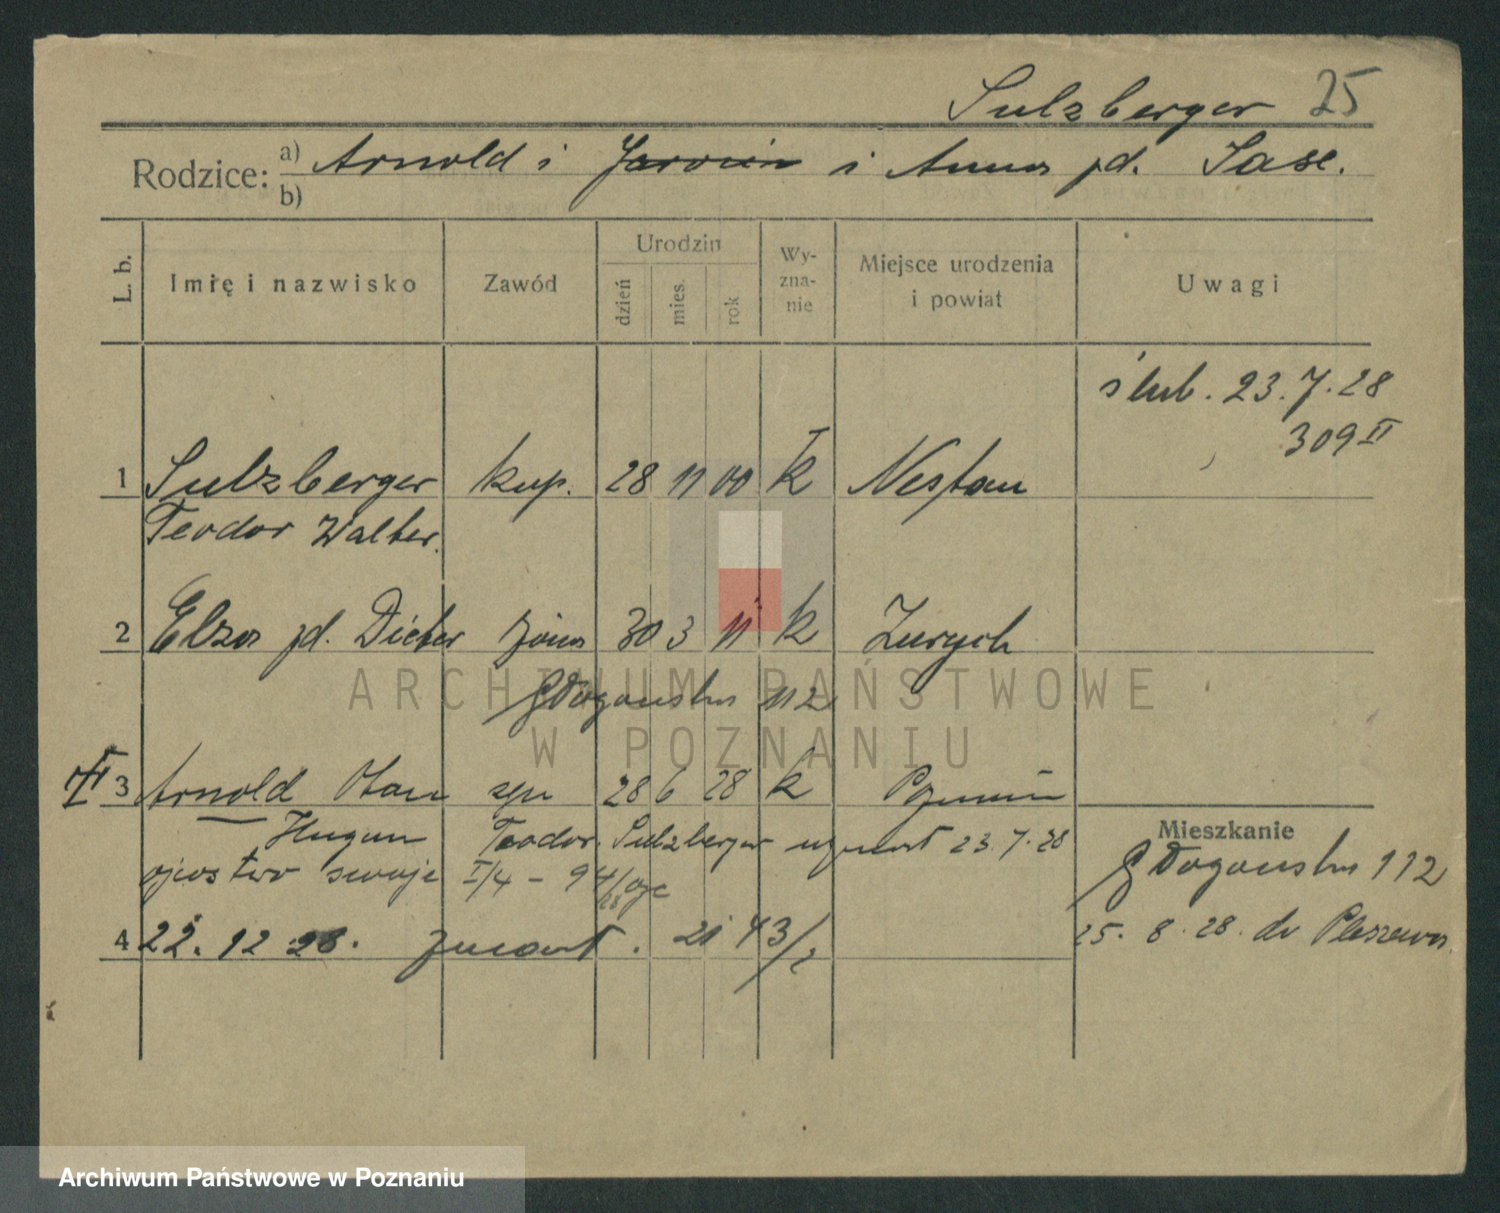 Sulzberger 25
Rodzice: a) Arnold i Jarocin i Anna zd. Sase.
b)
L. b. Imię i nazwisko Zawód Urodzin dzień mies. rok Wy-zna-nie Miejsce urodzenia i powiat Uwagi
ślub. 23.7.28
309 II
1 Sulzberger kup. 28 11 00 k
Teodor Walter.
2 Elza zd. Dieter żona 30 3 11 k Zurych
Głogowska 112
3 Arnold 28 6 28 k Poznań
Teodor Sulzberger uznał 23.7.28
ojcostwo swoje I/4 - 94/28
4 22. 12 28. 21 43/2
Mieszkanie
Głogowska 112
25. 8. 28. do Pleszewa.
ARCHIWUM PAŃSTWOWE
W POZNANIU
Archiwum Państwowe w Poznaniu